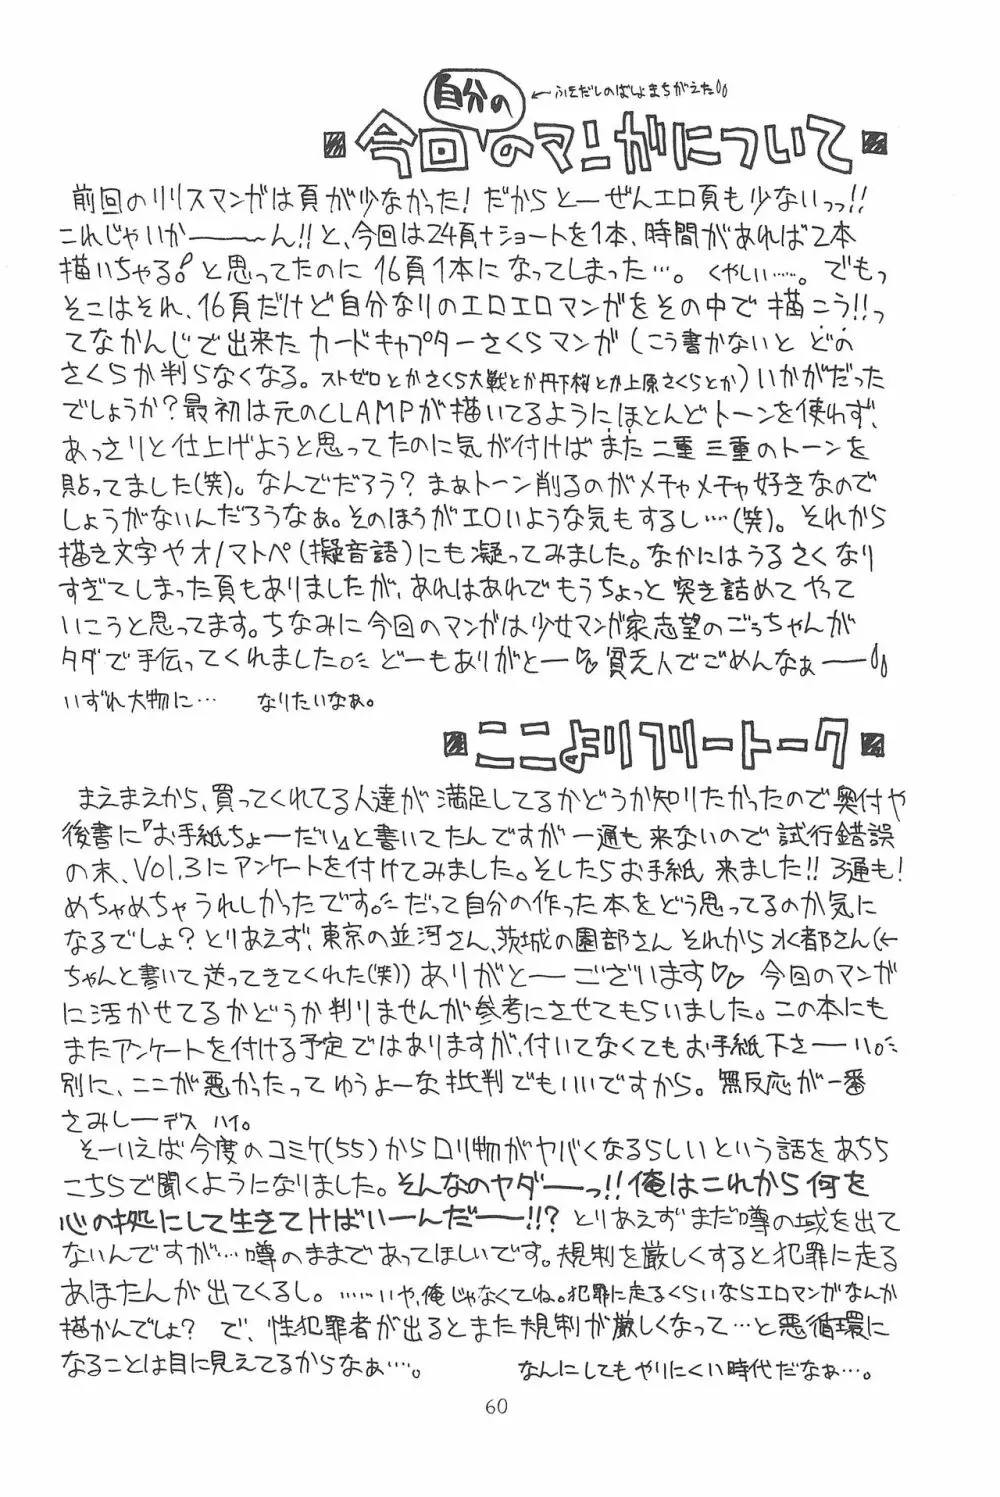 自分の
←ふきだしのばしょまちがえた
今回のマンガについて
前回のリリスマンガは頁が少なかった!だからとーぜんエロ頁も少ないっっ!!
これじゃいかー〜ん!!と、今回は24頁+ショートを1本、時間があれば2本
描いちゃる!と思ってたのに16頁1本になってしまった…。くやしい……。でもっ
そこはそれ、16頁だけど自分なりのエロエロマンガをその中で描こう!!っ
てなかんじで出来たカードキャプターさくらマンガ(こう書かないとどの
さくらか判らなくなる。ストゼロとかさくら大戦とか丹下桜とか上原さくらとか)いかがだった
でしょうか?最初は元のCLAMPが描いてるように、ほとんどトーンを使わず、
あっさりと仕上げようと思ってたのに気が付けばまた二重三重のトーンを
貼ってました(笑)。なんでだろう?まぁトーン削るのがメチャメチャ好きなので
しょうがないんだろうなぁ。そのほうがエロいような気もするし…(笑)。それから
描き文字やオノマトペ(擬音語)にも凝ってみました。なかにはうるさくなり
すぎてしまった頁もありましたが、あれはあれでもうちょっと突き詰めてやって
いこうと思ってます。ちなみに今回のマンガは少女マンガ家志望のごぅちゃんが
タダで手伝ってくれました。どーもありがとー♡貧乏人でごめんなぁー
いずれ大物に… なりたいなぁ。
ここよりフリートーク
まえまえから、買ってくれてる人達が満足してるかどうか知りたかったので奥付や
後書に『お手紙ちょーだい』と書いてたんですが一通も来ないので試行錯誤
の末、Vol.3にアンケートを付けてみました。そしたらお手紙来ました!!3通も!
めちゃめちゃうれしかったです。だって自分の作った本をどう思ってるのか気に
なるでしょ?とりあえず、東京の並河さん、茨城の園部さんそれから水都さん(←
ちゃんと書いて送ってきてくれた(笑))ありがとーございます♡♡今回のマンガ
に活かせてるかどうか判りませんが参考にさせてもらいました。この本にも
またアンケートを付ける予定ではありますが、付いてなくてもお手紙下さーい。
別に、ここが悪かったってゆうよーな批判でもいいですから。無反応が一番
さみしーデス ハイ。
そーいえば今度のコミケ(55)からロリ物がヤバくなるらしいという話をあちら
こちらで聞くようになりました。そんなのヤダーっ!!俺はこれから何を
心の拠にして生きてけばいーんだー!!?とりあえずまだ噂の域を出て
ないんですが…噂のままであってほしいです。規制を厳しくすると犯罪に走る
あほたんが出てくるし。……いや、俺じゃなくてね。犯罪に走るくらいならエロマンガなんか
描かんでしょ?で、性犯罪者が出るとまた規制が厳しくなって…と悪循環に
なることは目に見えてるからなぁ…。 なんにしてもやりにくい時代だなぁ…。
60